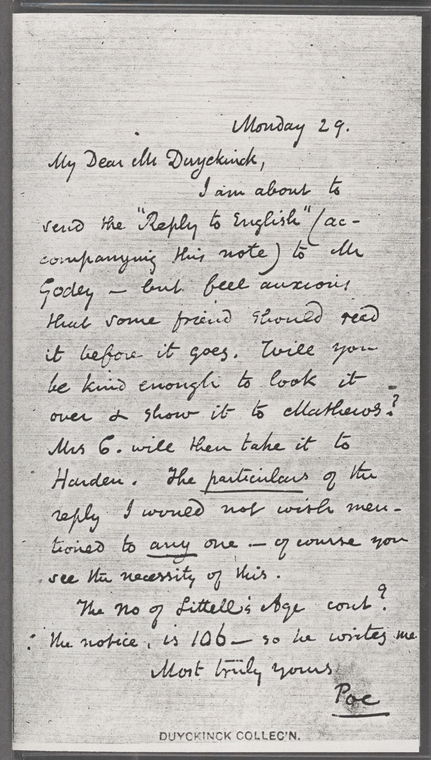 Monday 29.
My Dear Mr Duyckinck,
I am about to
send the "Reply to English" (ac-
companying this note) to Mr
Godey — but feel anxious
that some friend should read
it before it goes. Will you
be kind enough to look it
over & show it to Mathews?
Mrs C. will then take it to
Harden. The particulars of the
reply I would not wish men-
tioned to any one — of course you
see the necessity of this.
The No of Littell's Age cont?
the notice, is 106 — so he writes me
Most truly yours
Poe
DUYCKINCK COLLEC'N.